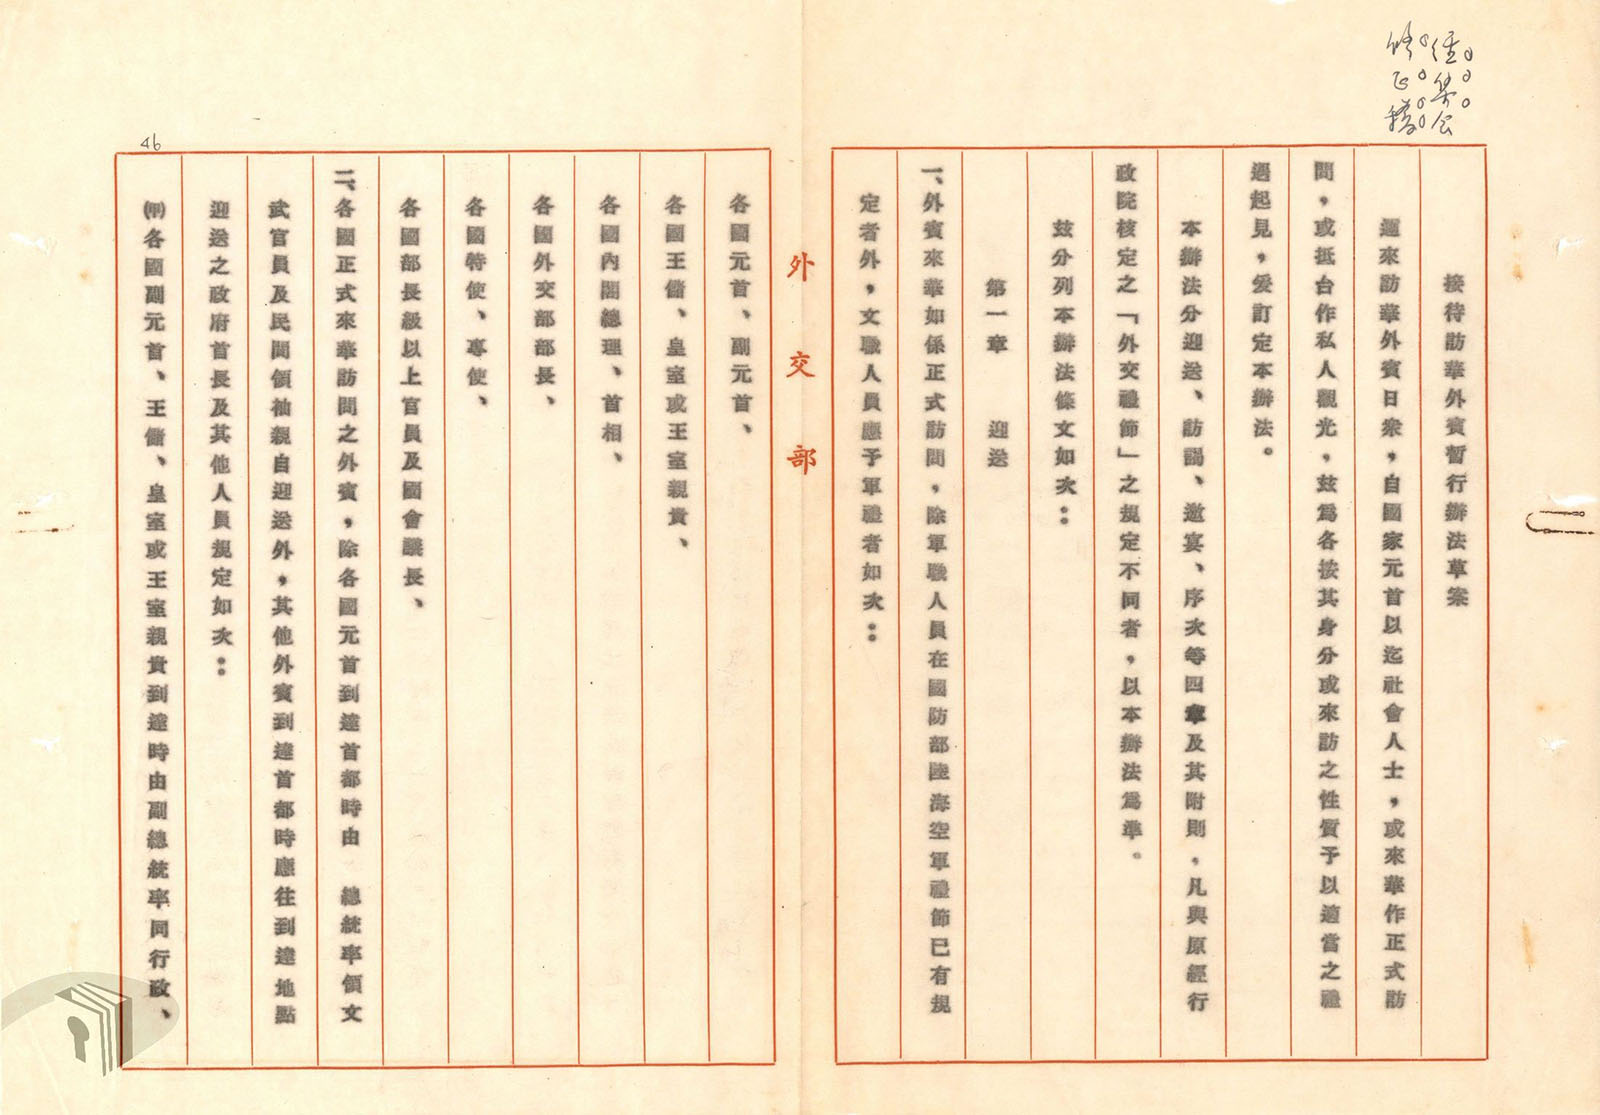 經集会
修正稿
接待訪華外賓暫行辦法草案
邇來訪華外賓日衆，自國家元首以迄社會人士，或來華作正式訪
問，或抵台作私人觀光，玆爲各按其身分或來訪之性質予以適當之禮
遇起見，爰訂定本辦法。
本辦法分迎送、訪謁、邀宴、序次等四章及其附則，凡與原經行
政院核定之「外交禮節」之規定不同者，以本辦法爲準。
玆分列本辦法條文如次：
第一章　迎送
一、外賓來華如係正式訪問，除軍職人員在國防部陸海空軍禮節已有規
定者外，文職人員應予軍禮者如次：
外交部
各國元首、副元首、
各國王儲、皇室或王室親貴、
各國內閣總理、首相、
各國外交部部長、
各國特使、專使、
各國部長級以上官員及國會議長、
二、各國正式來華訪問之外賓，除各國元首到達首都時由　總統率領文
武官員及民間領袖親自迎送外，其他外賓到達首都時應往到達地點
迎送之政府首長及其他人員規定如次：
㈠各國副元首、王儲、皇室或王室親貴到達時由副總統率同行政、
46